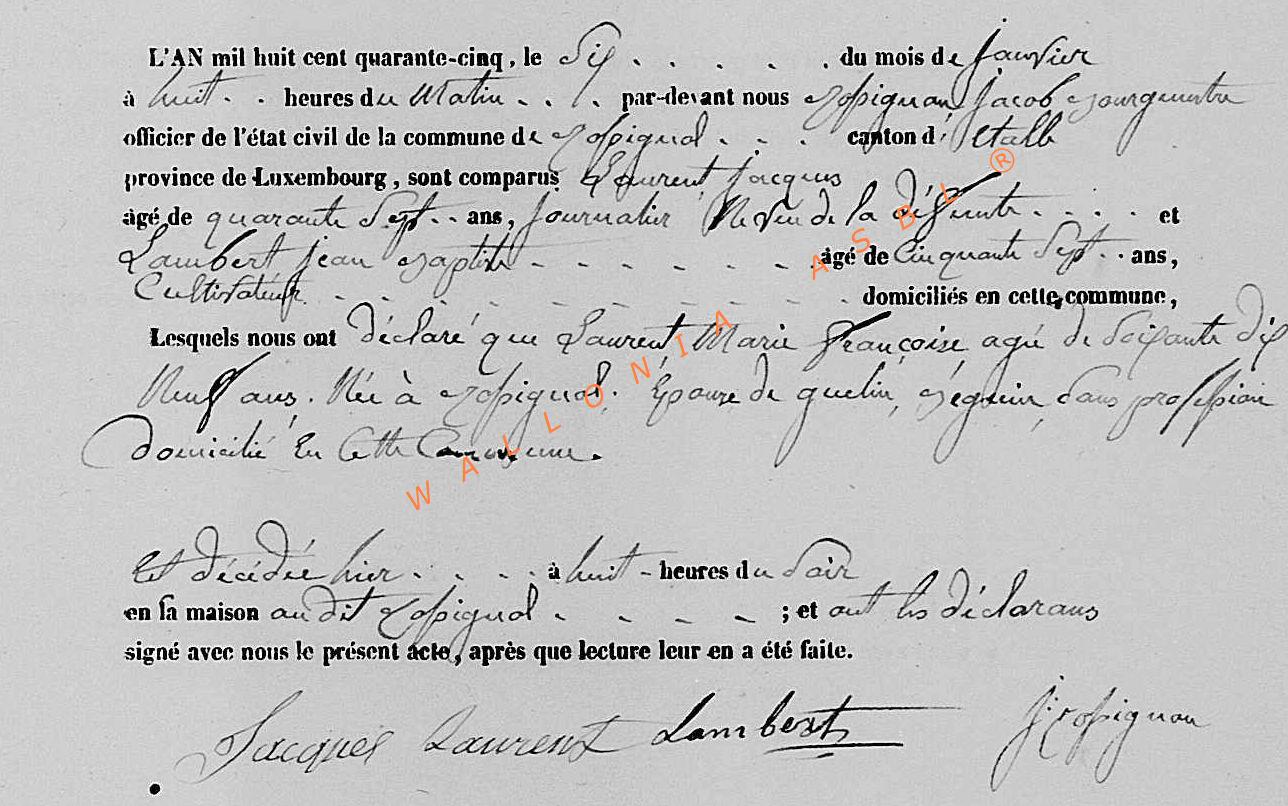 L'AN mil huit cent quarante-cinq, le Six . . . . . du mois de Janvier
à huit . . heures du Matin . . . . par-devant nous Rossignon Jacob Bourgmestre
officier de l'état civil de la commune de Rossignol . . . canton d'Etalle
province de Luxembourg, sont comparus Laurent Jacques
âgé de quarante Sept . . ans, Journalier Neveu de la défunte . . . . et
Lambert jean Baptiste - - - - - - - . âgé de Cinquante Sept . . ans,
Cultivateur . - . - - - - - - - - - . domiciliés en cette commune,
Lesquels nous ont déclaré que Laurent Marie françoise agé de Soixante dix
Neuf ans. Née à Rossignol. Epouse de guelin, sans profession
domicilié En Cette Commune.
Est décédée hier . . . . à huit - heures du Soir
en sa maison au dit Rossignol - - - - ; et ont les déclarans
signé avec nous le présent acte, après que lecture leur en a été faite.
Jacques Laurent Lambert J. Rossignon
WALLONIA ASBL ®